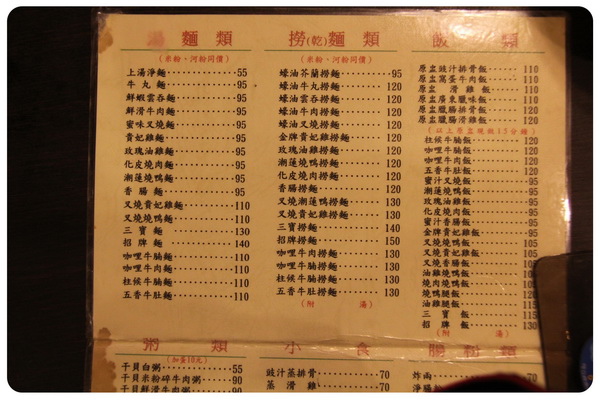 麵 類
(米粉、河粉同價)
上湯淨麵 55
牛丸麵 95
鮮蝦雲吞麵 95
鮮滑牛肉麵 95
蜜味叉燒麵 95
貴妃雞麵 95
玫瑰油雞麵 95
化皮燒肉麵 95
潮蓮燒鴨麵 95
香腸麵 95
叉燒貴妃雞麵 110
叉燒燒鴨麵 110
三寶麵 130
招牌麵 140
咖哩牛腩麵 110
咖哩牛肉麵 110
柱候牛腩麵 110
五香牛肚麵 110
撈(乾)麵 類
(米粉、河粉同價)
蠔油芥蘭撈麵 95
蠔油牛丸撈麵 120
蠔油雲吞撈麵 120
蠔油牛肉撈麵 120
蠔油叉燒撈麵 120
金牌貴妃雞撈麵 120
玫瑰油雞撈麵 120
潮蓮燒鴨撈麵 120
化皮燒肉撈麵 120
香腸撈麵 120
叉燒潮蓮鴨撈麵 130
叉燒貴妃雞撈麵 130
三寶撈麵 140
招牌撈麵 150
咖哩牛腩撈麵 130
咖哩牛肉撈麵 130
柱候牛腩撈麵 130
五香牛肚撈麵 130
(附 湯)
飯 類
原盅豉汁排骨飯 110
原盅窩蛋牛肉飯 110
原盅滑雞飯 110
原盅廣東臘味飯 110
原盅臘腸排骨飯 120
原盅臘腸滑雞飯 120
柱候牛腩飯 120
咖哩牛腩飯 120
咖哩牛肉飯 120
五香牛肚飯 120
蜜汁叉燒飯 95
潮蓮燒鴨飯 95
玫瑰油雞飯 95
化皮燒肉飯 95
蜜汁香腸飯 95
金牌貴妃雞飯 95
叉燒燒鴨飯 105
叉燒貴妃雞飯 105
叉燒香腸飯
油雞燒鴨飯
燒肉燒鴨飯
燒鴨腿飯
油雞腿飯 115
三寶飯 115
招牌飯 130
(附 湯)
粥 類
(加蛋10元)
干貝白粥 55
干貝米粉碎牛肉粥 90
小 食
豉汁蒸排骨 70
蒸滑雞 70
腸粉類
炸兩 70